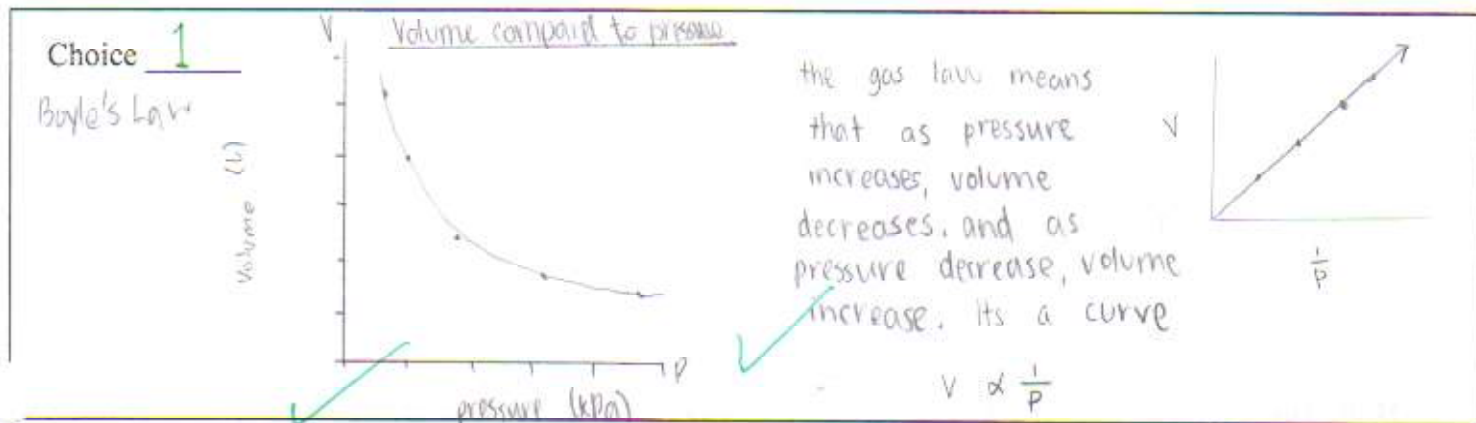 Choice 1
Boyle's Law
V
Volume compaird to pressure
Volume (L)
P
pressure (kPa)
the gas law means
that as pressure
increases, volume
decreases. and as
pressure decrease, volume
increase. its a curve
V ∝ 1/P
V
1/P